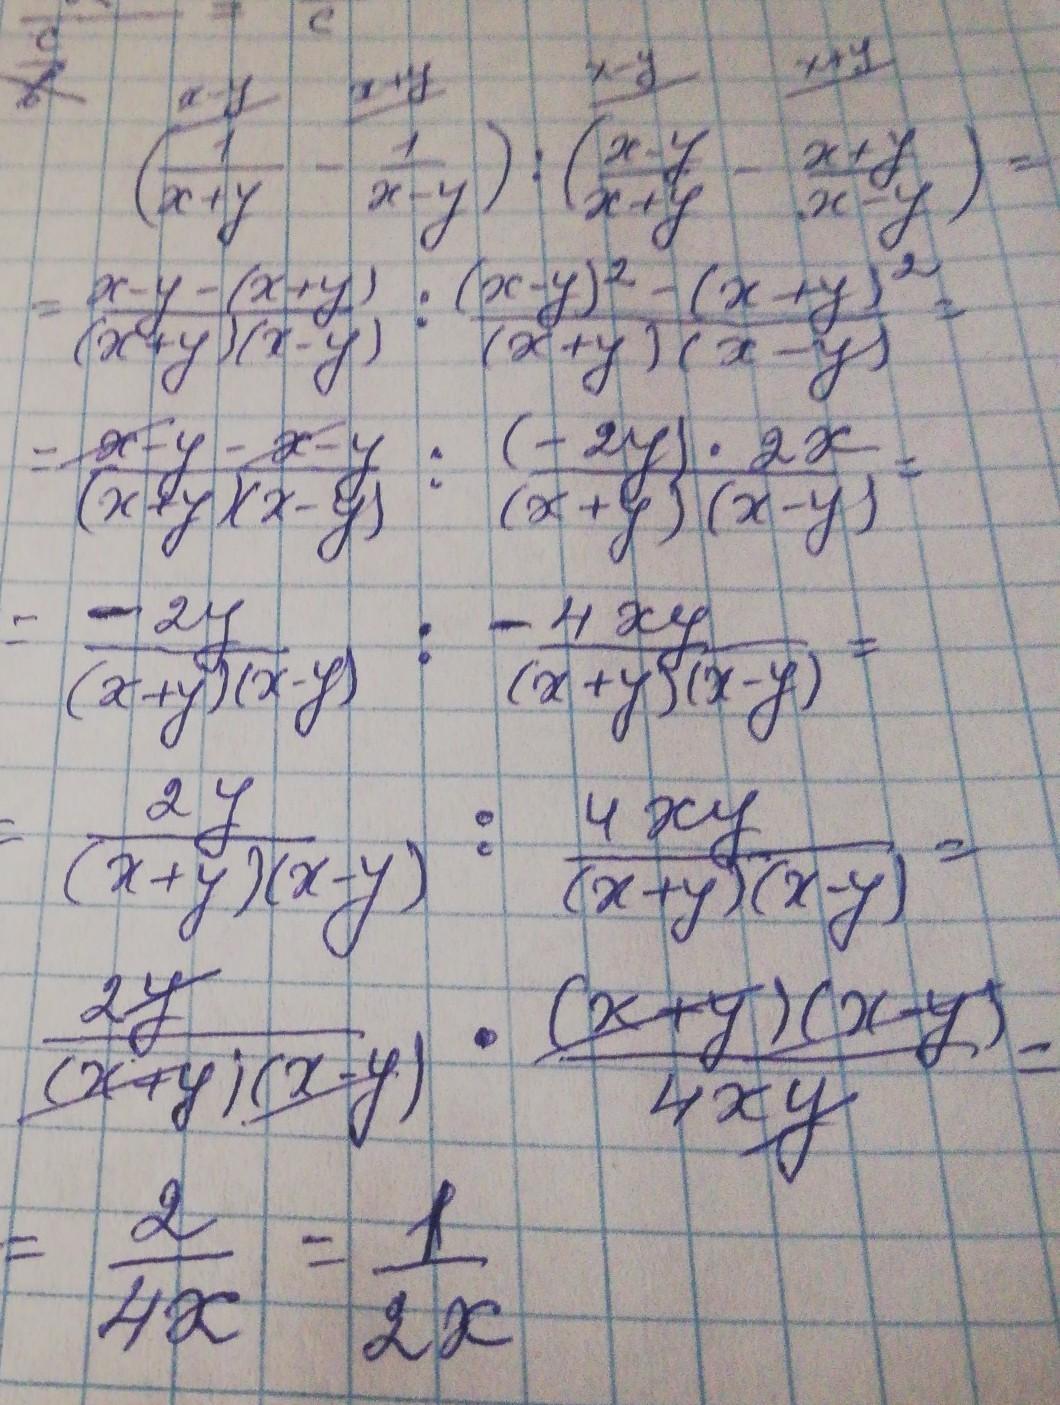 = c
x-y x+y x-y x+y
(1/(x+y) - 1/(x-y)) : ((x-y)/(x+y) - (x+y)/(x-y)) =
= (x-y-(x+y))/((x+y)(x-y)) : ((x-y)² - (x+y)²)/((x+y)(x-y)) =
= (x-y-x-y)/((x+y)(x-y)) : ((-2y)·2x)/((x+y)(x-y)) =
= (-2y)/((x+y)(x-y)) : (-4xy)/((x+y)(x-y)) =
= (2y)/((x+y)(x-y)) : (4xy)/((x+y)(x-y)) =
(2y)/((x+y)(x-y)) · ((x+y)(x-y))/(4xy) =
= 2/(4x) = 1/(2x)